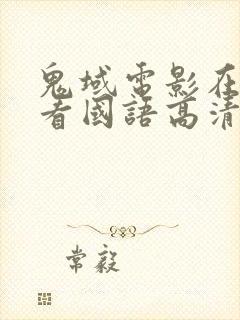 鬼域電影在
看國語高清
常毅